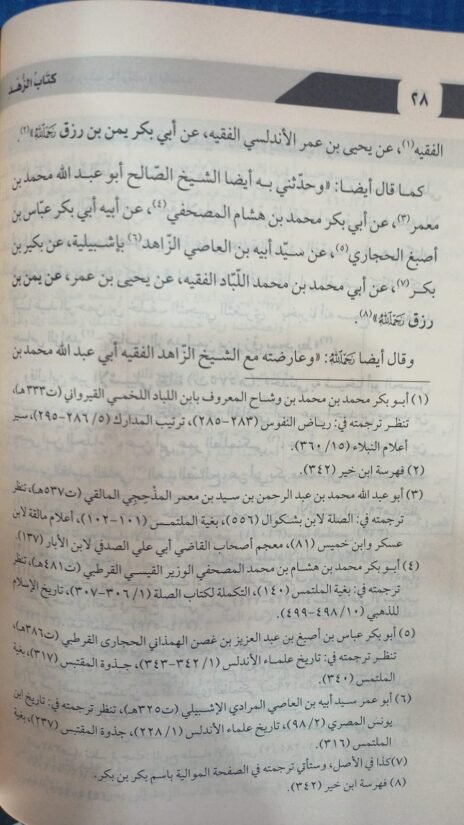 كتاب الزهد
٢٨
الفقيه(١)، عن يحيى بن عمر الأندلسي الفقيه، عن أبي بكر يمن بن رزق رَحِمَهُ اللَّهُ»(٢).
كما قال أيضا: «وحدثني به أيضا الشيخ الصّالح أبو عبد الله محمد بن
معمر(٣)، عن أبي بكر محمد بن هشام المصحفي(٤)، عن أبيه أبي بكر عبّاس بن
أصبغ الحجاري(٥)، عن سيّد أبيه بن العاصي الزّاهد(٦) بإشبيلية، عن بكير بن
بكر(٧)، عن أبي محمد بن محمد اللّباد الفقيه، عن يحيى بن عمر، عن يمن بن
رزق رَحِمَهُ اللَّهُ»(٨).
وقال أيضا رَحِمَهُ اللَّهُ: «وعارضته مع الشيخ الزّاهد الفقيه أبي عبد الله محمد بن
(١) أبو بكر محمد بن محمد بن وشاح المعروف بابن اللباد اللخمي القيرواني (ت٣٣٣هـ)،
تنظر ترجمته في: رياض النفوس (٢٨٣-٢٨٥)، ترتيب المدارك (٥/ ٢٨٦-٢٩٥)، سير
أعلام النبلاء (١٥/ ٣٦٠).
(٢) فهرسة ابن خير (٣٤٢).
(٣) أبو عبد الله محمد بن عبد الرحمن بن سيد بن معمر المذحجي المالقي (ت٥٣٧هـ)، تنظر
ترجمته في: الصلة لابن بشكوال (٥٥٦)، بغية الملتمس (١٠١-١٠٢)، أعلام مالقة لابن
عسكر وابن خميس (٨١)، معجم أصحاب القاضي أبي علي الصدفي لابن الأبار (١٣٧).
(٤) أبو بكر محمد بن هشام بن محمد المصحفي الوزير القيسي القرطبي (ت٤٨١هـ)، تنظر
ترجمته في: بغية الملتمس (١٤٠)، التكملة لكتاب الصلة (١/ ٣٠٦-٣٠٧)، تاريخ الإسلام
للذهبي (١٠/ ٤٩٨-٤٩٩).
(٥) أبو بكر عباس بن أصبغ بن عبد العزيز بن غصن الهمذاني الحجاري القرطبي (ت٣٨٦هـ)،
تنظر ترجمته في: تاريخ علماء الأندلس (١/ ٣٤٢-٣٤٣)، جذوة المقتبس (٣١٧)، بغية
الملتمس (٣٤٠).
(٦) أبو عمر سيد أبيه بن العاصي المرادي الإشبيلي (ت٣٢٥هـ)، تنظر ترجمته في: تاريخ ابن
يونس المصري (٢/ ٩٨)، تاريخ علماء الأندلس (١/ ٢٢٨)، جذوة المقتبس (٢٣٧)، بغية
الملتمس (٣١٦).
(٧) كذا في الأصل، وستأتي ترجمته في الصفحة الموالية باسم بكر بن بكر.
(٨) فهرسة ابن خير (٣٤٢).